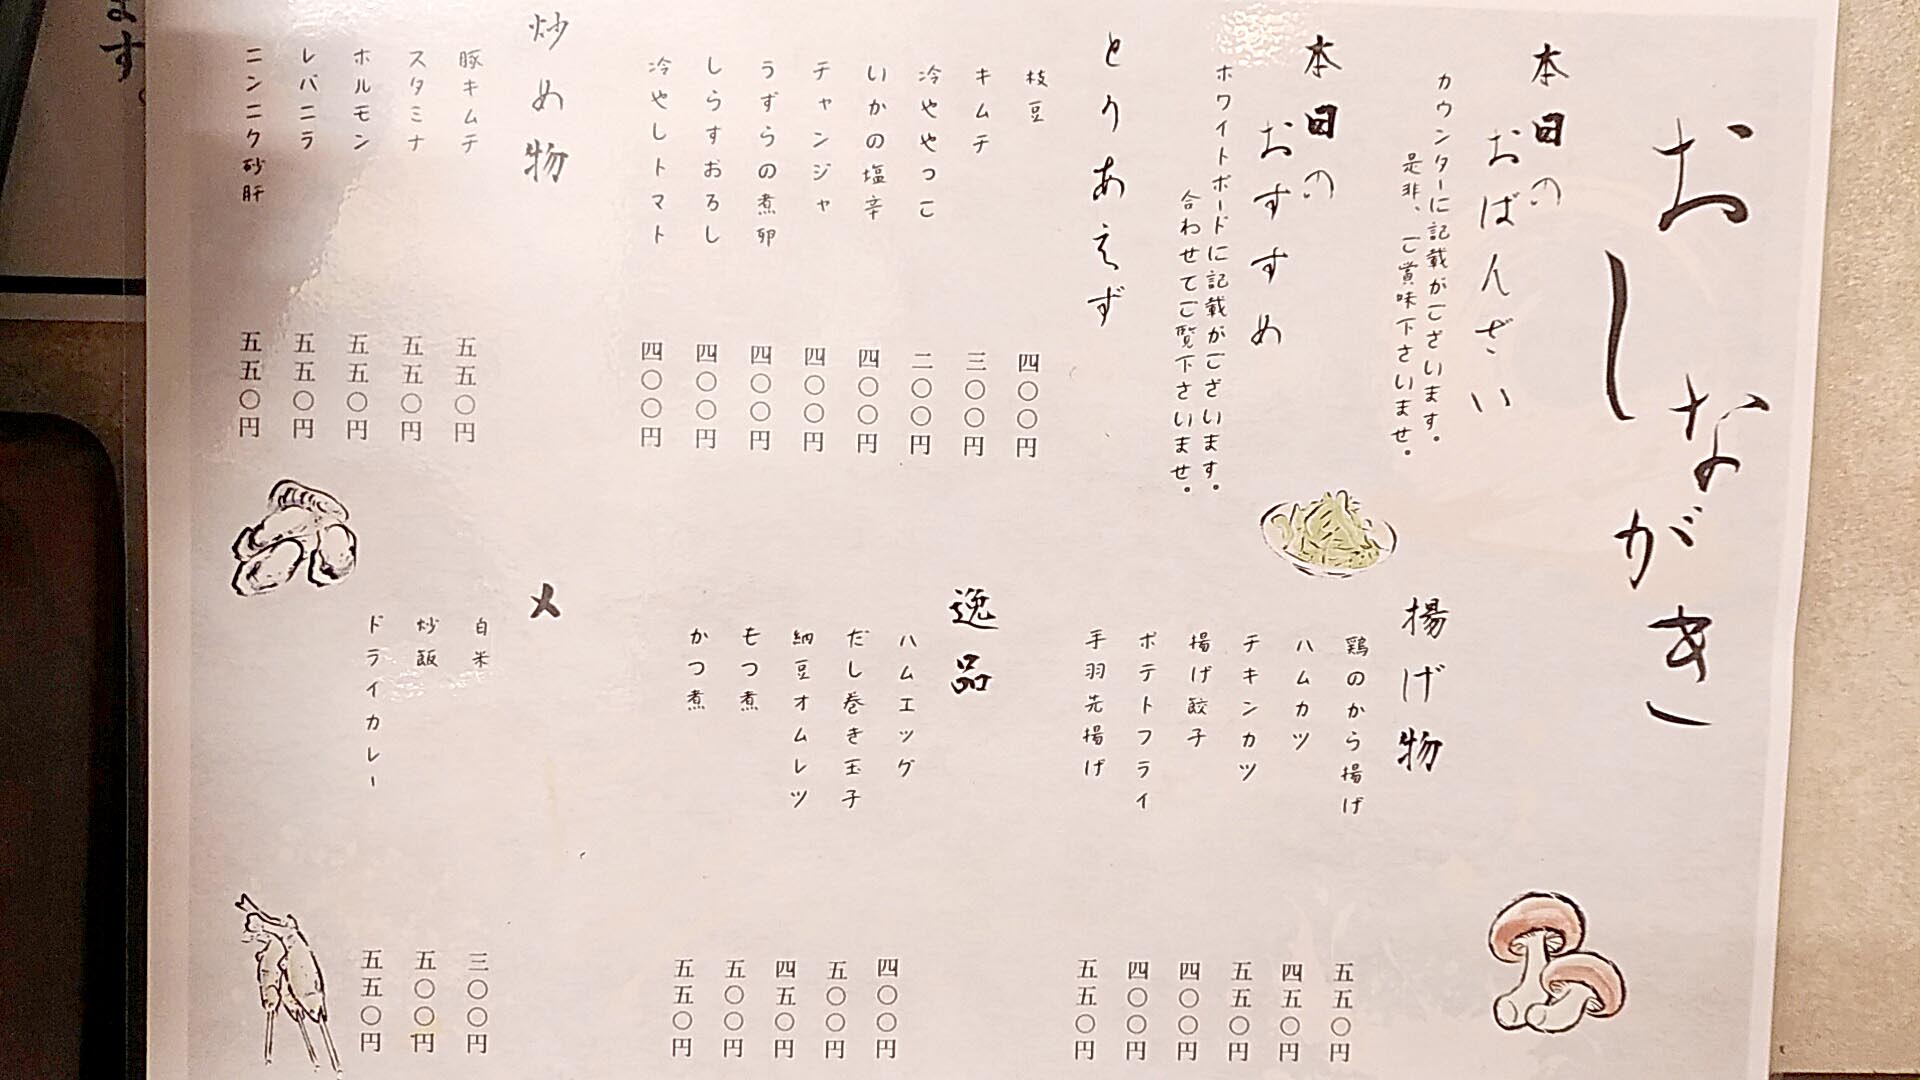 おしながき
本日の
おばんざい
カウンターに記載がございます。
是非、ご賞味下さいませ。
本日の
おすすめ
ホワイトボードに記載がございます。
合わせてご覧下さいませ。
とりあえず
枝豆 四〇〇円
キムチ 三〇〇円
冷ややっこ 二〇〇円
いかの塩辛 四〇〇円
チャンジャ 四〇〇円
うずらの煮卵 四〇〇円
しらすおろし 四〇〇円
冷やしトマト 四〇〇円
炒め物
豚キムチ 五五〇円
スタミナ 五五〇円
ホルモン 五五〇円
レバニラ 五五〇円
ニンニク砂肝 五五〇円
揚げ物
鶏のから揚げ 五五〇円
ハムカツ 四五〇円
チキンカツ 五五〇円
揚げ餃子 四〇〇円
ポテトフライ 四〇〇円
手羽先揚げ 五五〇円
逸品
ハムエッグ 四〇〇円
だし巻き玉子 五〇〇円
納豆オムレツ 四五〇円
もつ煮 五〇〇円
かつ煮 五五〇円
〆
白米 三〇〇円
炒飯 五〇〇円
ドライカレー 五五〇円
ます。